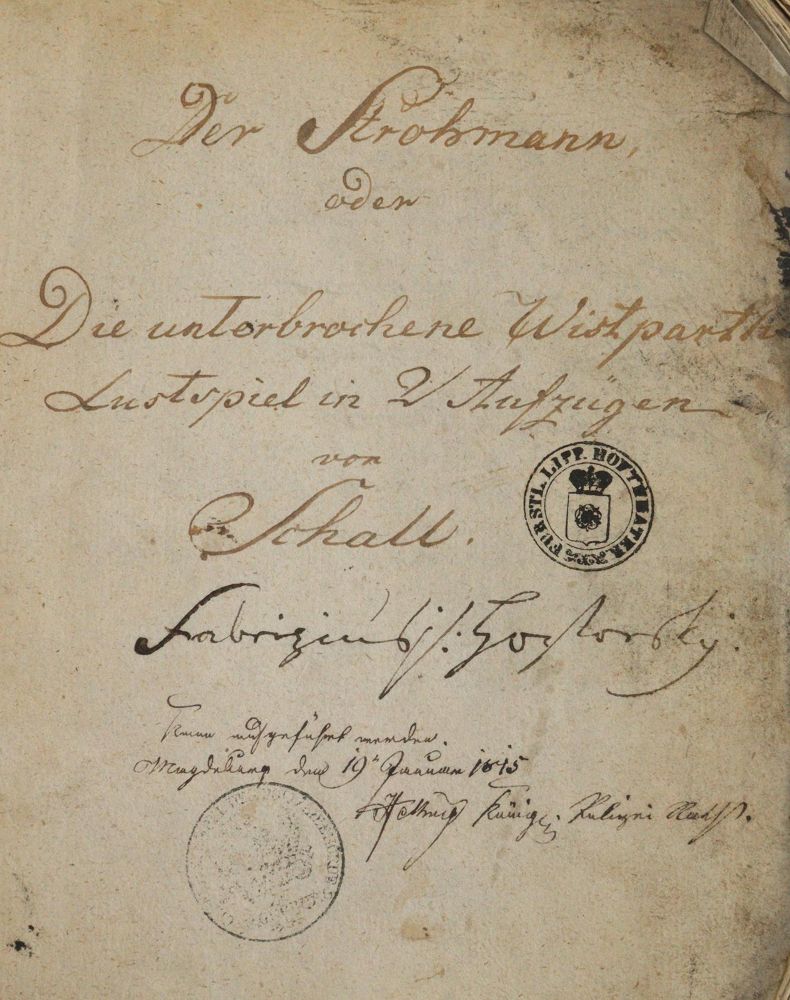 Der Strohmann,
oder
Die unterbrochene Wistparthi
Lustspiel in 2 Aufzügen
von
Schall.
FÜRSTL. LIPP. HOFTHEATER.
Fabrizius
Kann aufgeführt werden.
Magdeburg den 19t Januar 1815
Königl. Polizei Rath.